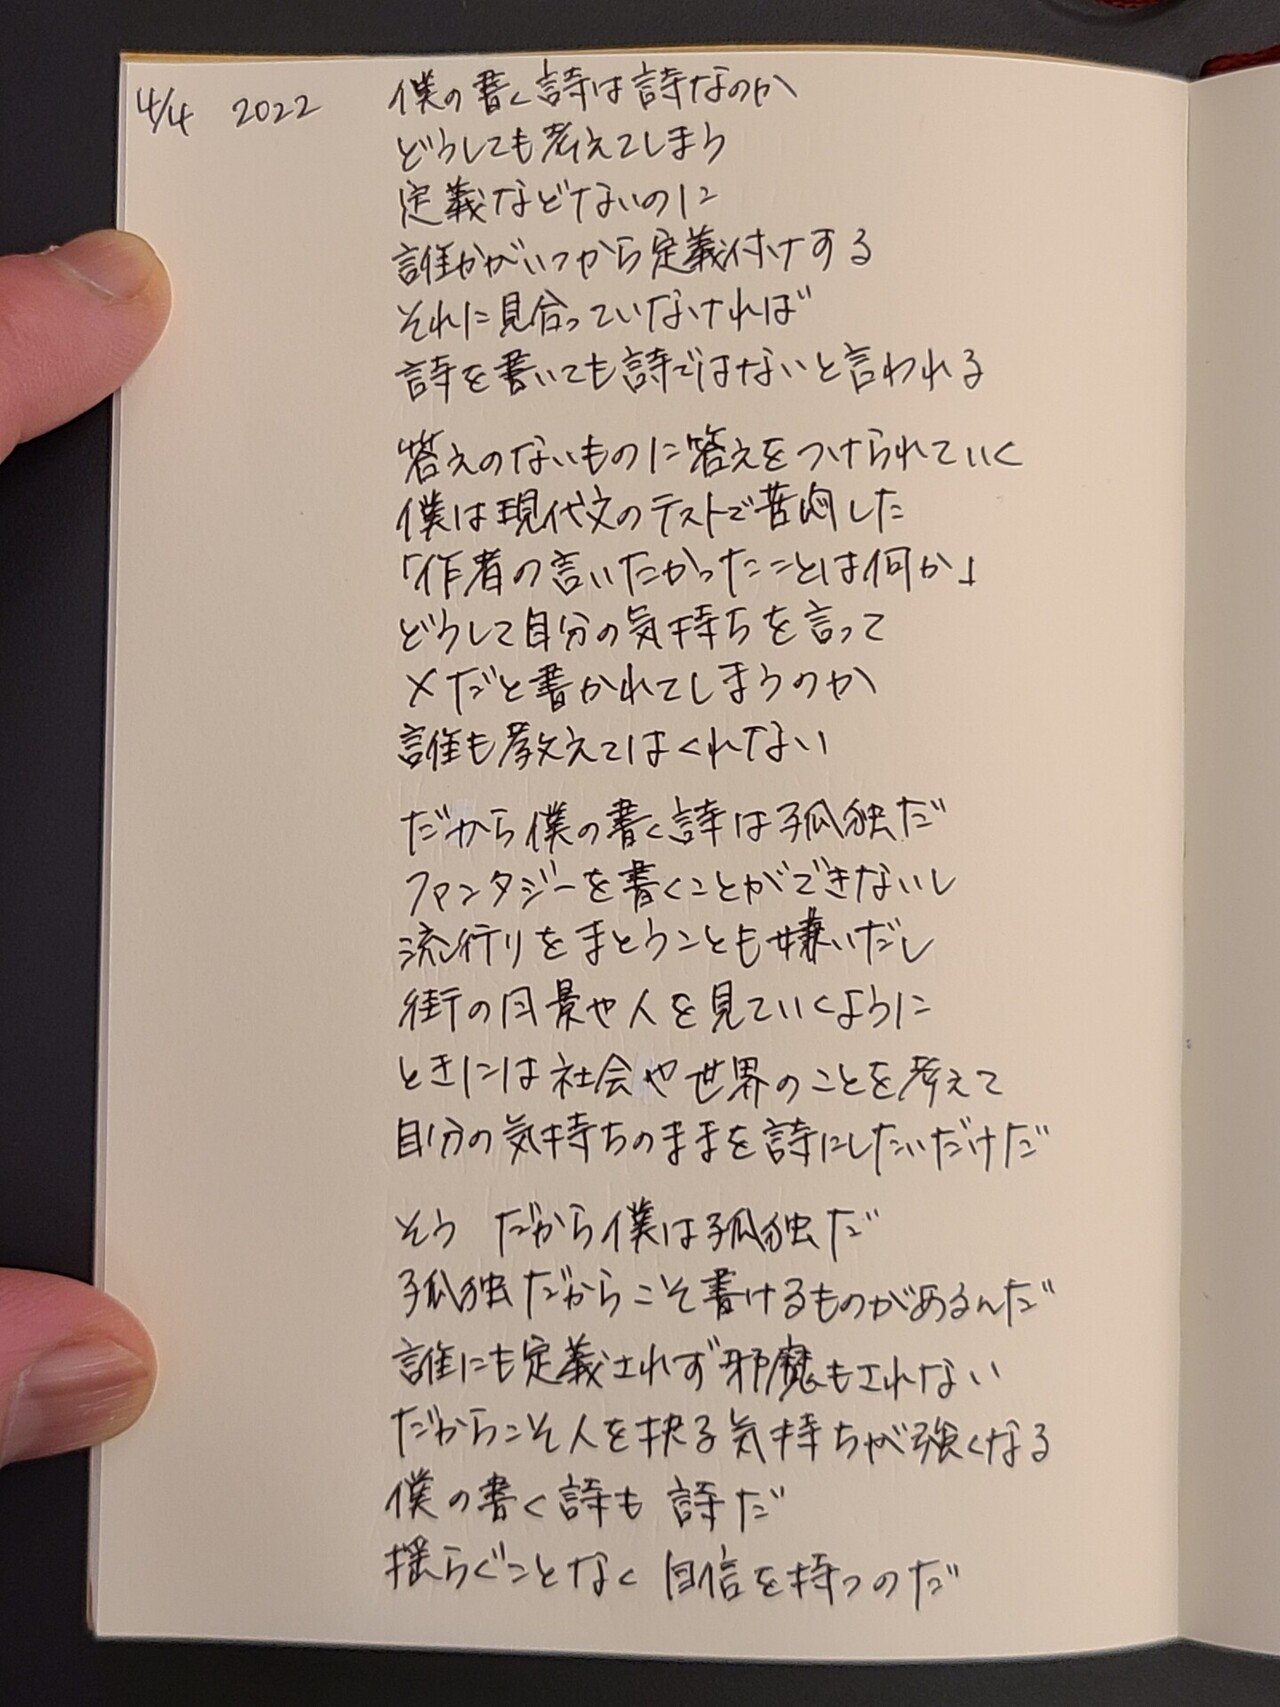 4/4 2022 僕の書く詩は詩なのか
どうしても考えてしまう
定義などないのに
誰かがいつから定義付けする
それに見合っていなければ
詩を書いても詩ではないと言われる
答えのないものに答えをつけられていく
僕は現代文のテストで苦悶した
「作者の言いたかったことは何か」
どうして自分の気持ちを言って
×だと書かれてしまうのか
誰も教えてはくれない
だから僕の書く詩は孤独だ
ファンタジーを書くことができないし
流行りをまとうことも嫌いだし
街の風景や人を見ていくように
ときには社会や世界のことを考えて
自分の気持ちのままを詩にしたいだけだ
そう だから僕は孤独だ
孤独だからこそ書けるものがあるんだ
誰にも定義されず邪魔もされない
だからこそ人を抉る気持ちが強くなる
僕の書く詩も 詩だ
揺らぐことなく 自信を持つのだ